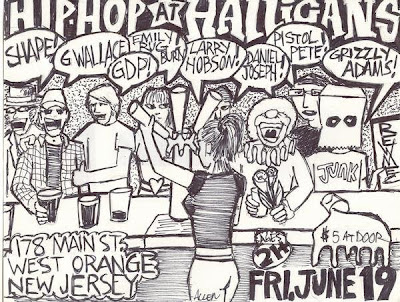 HIP·HOP AT HALLIGANS
SHAPE!
G WALLACE
GDP!
FAMILY! RUG BURN!
LARRY HOBSON!
DANIEL JOSEPH!
PISTOL PETE!
GRIZZLY ADAMS!
JUNK
178 MAIN ST.
WEST ORANGE
NEW JERSEY
21+
$5 AT DOOR
FRI, JUNE 19